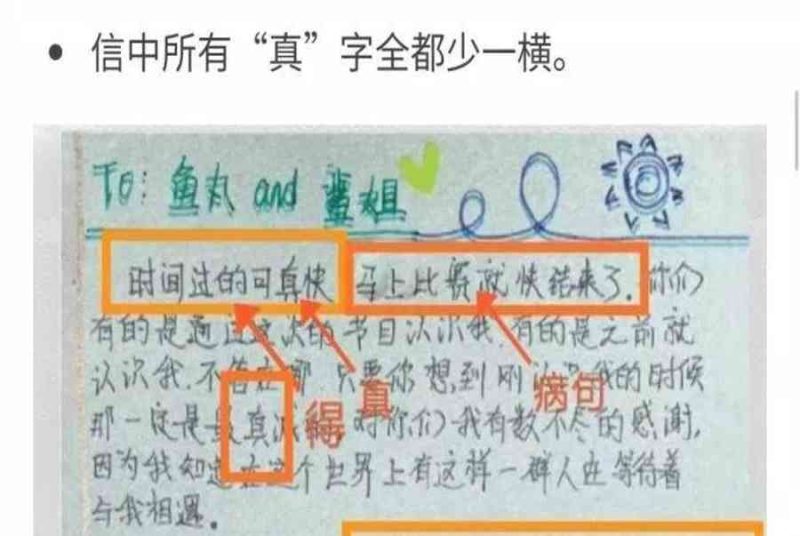 • 信中所有“真”字全都少一横。
To: 鱼丸 and 鲨姐
时间过的可真快 马上比赛就快结束了. 你们
有的是通过这次的节目认识我, 有的是之前就
认识我, 不管在哪 只要你想到刚认识我的时候
那一定是最真 对你们我有数不尽的感谢,
因为我知道在这个世界上有这样一群人在等待着
与我相遇。
得
真
病句